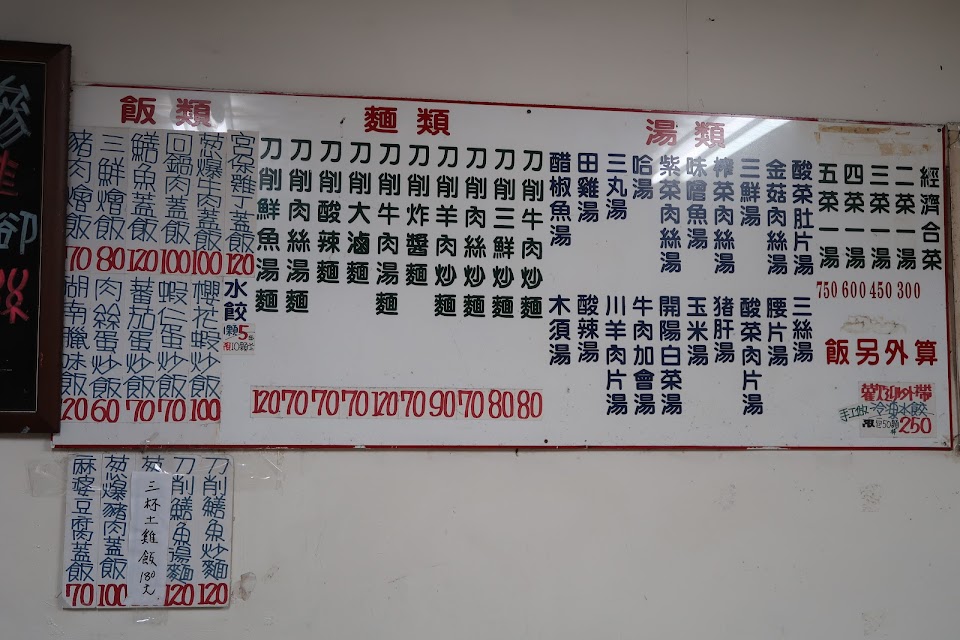 飯類
宮保雞丁蓋飯
120
葱爆牛肉蓋飯
100
回鍋肉蓋飯
100
鱔魚蓋飯
120
三鮮燴飯
80
豬肉燴飯
70
水餃
1顆5元
櫻花蝦炒飯
100
蝦仁蛋炒飯
70
蕃茄蛋炒飯
70
肉絲蛋炒飯
60
湖南臘味飯
120
麵類
刀削牛肉炒麵
80
刀削三鮮炒麵
80
刀削肉絲炒麵
70
刀削羊肉炒麵
90
刀削炸醬麵
70
刀削牛肉湯麵
120
刀削大滷麵
70
刀削酸辣麵
70
刀削肉絲湯麵
70
刀削鮮魚湯麵
120
湯類
酸菜肚片湯
金菇肉絲湯
三鮮湯
榨菜肉絲湯
味噲魚湯
紫菜肉絲湯
哈湯
三丸湯
田雞湯
醋椒魚湯
三絲湯
腰片湯
酸菜肉片湯
豬肝湯
玉米湯
開陽白菜湯
牛肉加會湯
川羊肉片湯
酸辣湯
木須湯
經濟合菜
二菜一湯
300
三菜一湯
450
四菜一湯
600
五菜一湯
750
飯另外算
歡迎外帶
手工做冷凍水餃
250
刀削鱔魚炒麵
120
刀削鱔魚湯麵
120
三杯土雞飯180元
葱爆豬肉蓋飯
100
麻婆豆腐蓋飯
70